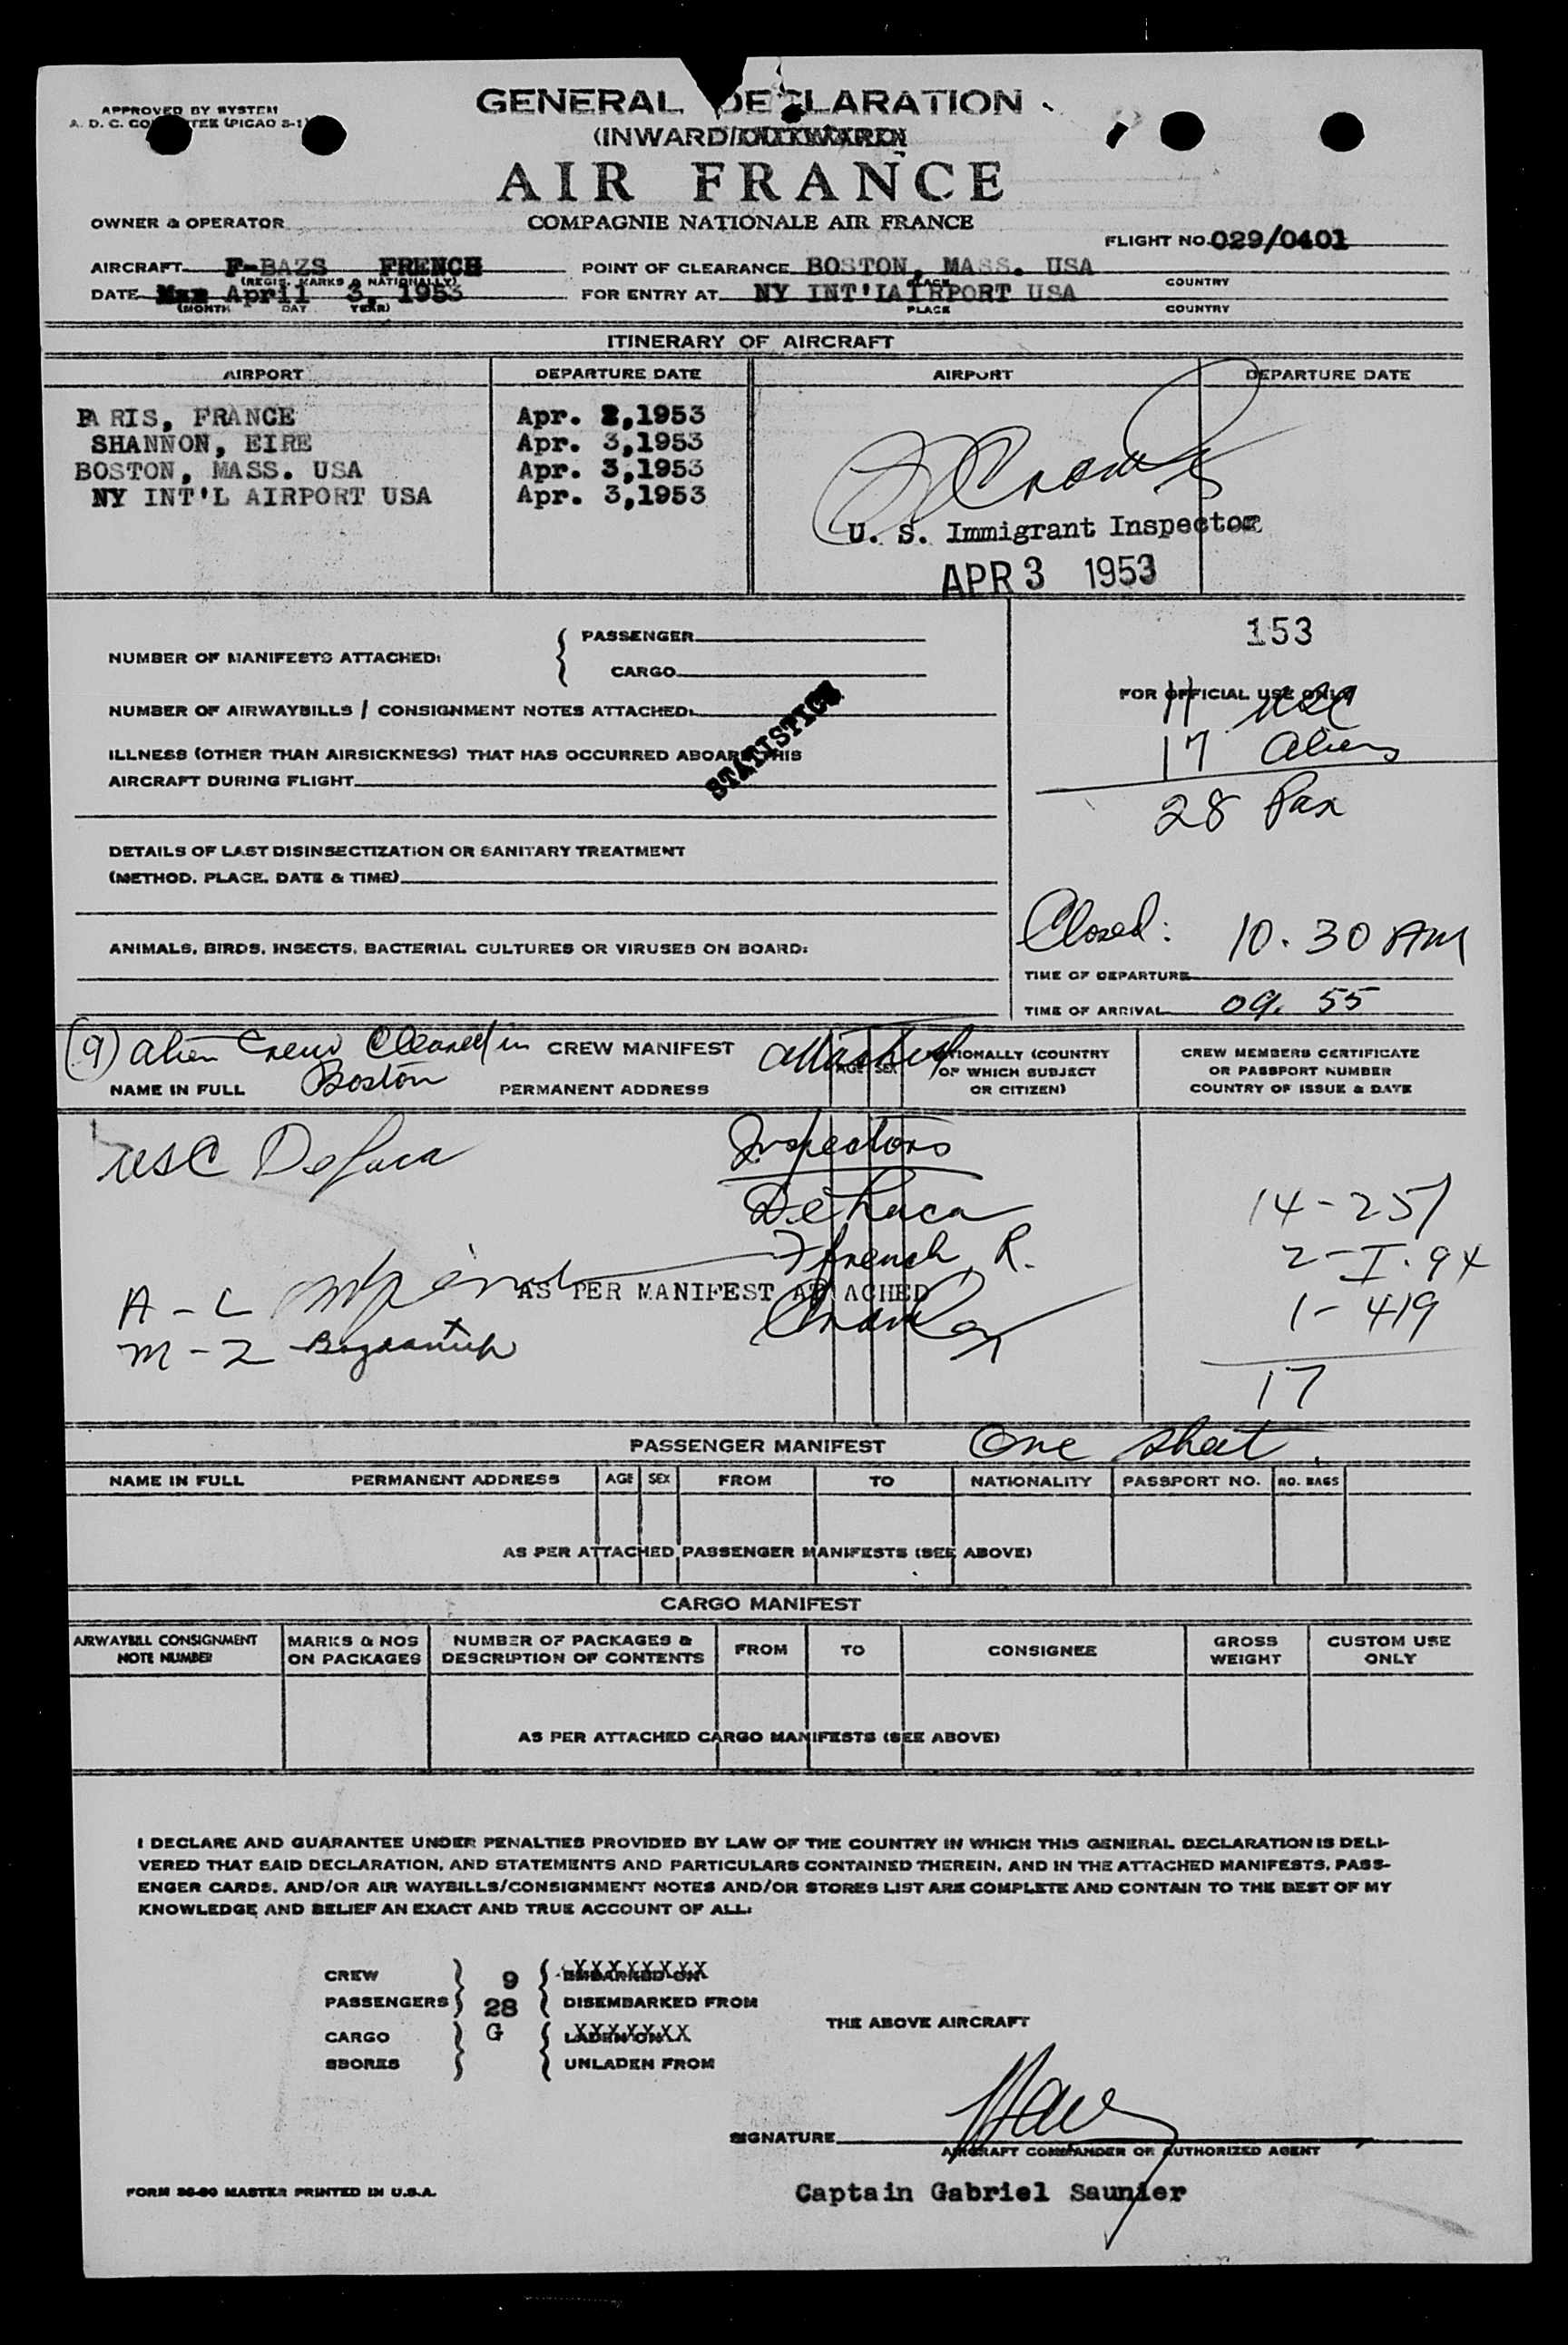 APPROVED BY SYSTEM
A. D. C. (PICAO S-1)
GENERAL DECLARATION
(INWARD/OUTWARD)
AIR FRANCE
COMPAGNIE NATIONALE AIR FRANCE
OWNER & OPERATOR
FLIGHT NO. 029/0401
AIRCRAFT F-BAZS FRENCH POINT OF CLEARANCE BOSTON, MASS. USA
(REGIS. MARKS & NATIONALLY) PLACE COUNTRY
DATE Mar April 3, 1953 FOR ENTRY AT NY INT'L AIRPORT USA
(MONTH DAY YEAR) PLACE COUNTRY
ITINERARY OF AIRCRAFT
AIRPORT DEPARTURE DATE AIRPORT DEPARTURE DATE
PARIS, FRANCE Apr. 2,1953
SHANNON, EIRE Apr. 3,1953
BOSTON, MASS. USA Apr. 3,1953
NY INT'L AIRPORT USA Apr. 3,1953
U. S. Immigrant Inspector
APR 3 1953
153
NUMBER OF MANIFESTS ATTACHED: { PASSENGER
CARGO
FOR OFFICIAL USE ONLY
11 USC
17 Aliens
28 Pax
NUMBER OF AIRWAYBILLS / CONSIGNMENT NOTES ATTACHED:
STATISTICS
ILLNESS (OTHER THAN AIRSICKNESS) THAT HAS OCCURRED ABOARD THIS
AIRCRAFT DURING FLIGHT
DETAILS OF LAST DISINSECTIZATION OR SANITARY TREATMENT
(METHOD, PLACE, DATE & TIME)
ANIMALS, BIRDS, INSECTS, BACTERIAL CULTURES OR VIRUSES ON BOARD:
Closed: 10.30 AM
TIME OF DEPARTURE
TIME OF ARRIVAL 09.55
(9) Alien Crew Cleared in Boston
CREW MANIFEST attached
NAME IN FULL PERMANENT ADDRESS AGE SEX NATIONALLY (COUNTRY OF WHICH SUBJECT OR CITIZEN) CREW MEMBERS CERTIFICATE OR PASSPORT NUMBER COUNTRY OF ISSUE & DATE
USC DeLuca
Inspectors
DeLuca
Ffrench, R.
14-257
2-I.94
1-419
17
A-L
M-Z
AS PER MANIFEST ATTACHED
PASSENGER MANIFEST One sheet.
NAME IN FULL PERMANENT ADDRESS AGE SEX FROM TO NATIONALITY PASSPORT NO. NO. BAGS
AS PER ATTACHED PASSENGER MANIFESTS (SEE ABOVE)
CARGO MANIFEST
AIRWAYBILL CONSIGNMENT NOTE NUMBER MARKS & NOS ON PACKAGES NUMBER OF PACKAGES & DESCRIPTION OF CONTENTS FROM TO CONSIGNEE GROSS WEIGHT CUSTOM USE ONLY
AS PER ATTACHED CARGO MANIFESTS (SEE ABOVE)
I DECLARE AND GUARANTEE UNDER PENALTIES PROVIDED BY LAW OF THE COUNTRY IN WHICH THIS GENERAL DECLARATION IS DELI-
VERED THAT SAID DECLARATION, AND STATEMENTS AND PARTICULARS CONTAINED THEREIN, AND IN THE ATTACHED MANIFESTS, PASS-
ENGER CARDS, AND/OR AIR WAYBILLS/CONSIGNMENT NOTES AND/OR STORES LIST ARE COMPLETE AND CONTAIN TO THE BEST OF MY
KNOWLEDGE AND BELIEF AN EXACT AND TRUE ACCOUNT OF ALL:
CREW } 9 { EMBARKED ON
PASSENGERS } 28 { DISEMBARKED FROM
THE ABOVE AIRCRAFT
CARGO } G { LADEN ON
SBORES } { UNLADEN FROM
SIGNATURE
AIRCRAFT COMMANDER OR AUTHORIZED AGENT
FORM 36-90 MASTER PRINTED IN U.S.A.
Captain Gabriel Saunier